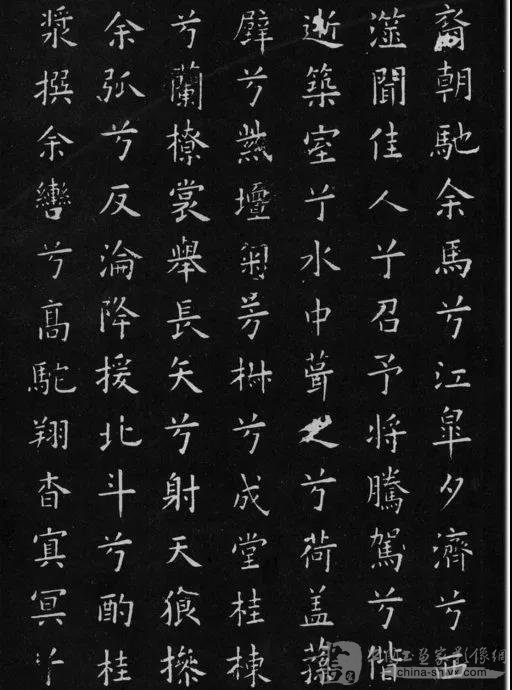 裔朝馳余馬兮江皋夕濟兮西
澨聞佳人兮召予將騰駕兮偕
逝築室兮水中葺之兮荷蓋蓀
壁兮壇匊芳椒兮成堂桂棟
兮蘭橑裳舉長矢兮射天狼操
余弧兮反淪降援北斗兮酌桂
漿撰余轡兮高駝翔杳冥冥兮
china-shyx.com